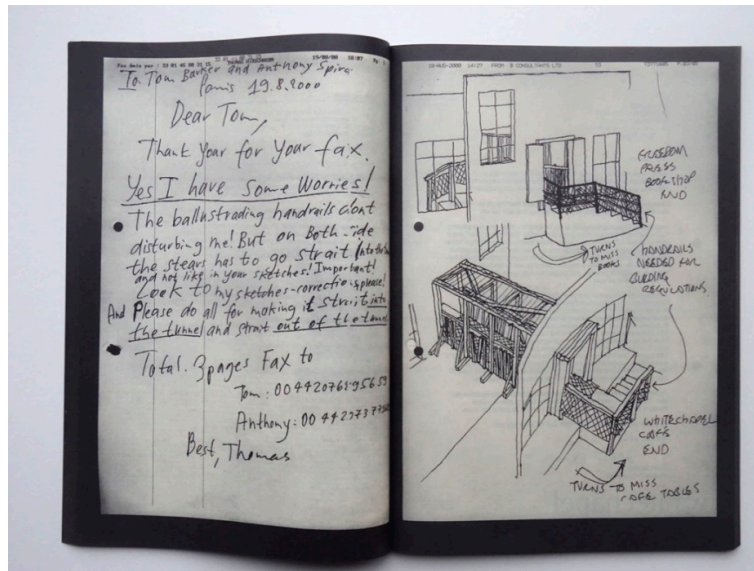 To. Tom Barker and Anthony Spira.
Paris 19.8.2000
Dear Tom,
Thank Your for Your fax.
Yes I have Some Worries!
The ballustrading handrails dont
disturbing me! But on Both side
the stears has to go strait
and not like in your sketches! Important!
Look to my sketches-correctio please!
And Please do all for making it strait into
the tunnel and strait out of the
Total. 3 pages Fax to
Tom:
Anthony:
Best, Thomas
19-AUG-2000 14:27 FROM B CONSULTANTS LTD TO
FREEDOM
PRESS
BOOKSHOP
END
TURNS
TO MISS
BOOKS
HANDRAILS
NEEDED FOR
BUILDING
REGULATIONS
WHITECHAPEL
CAFE
END
TURNS TO MISS
CAFE TABLES